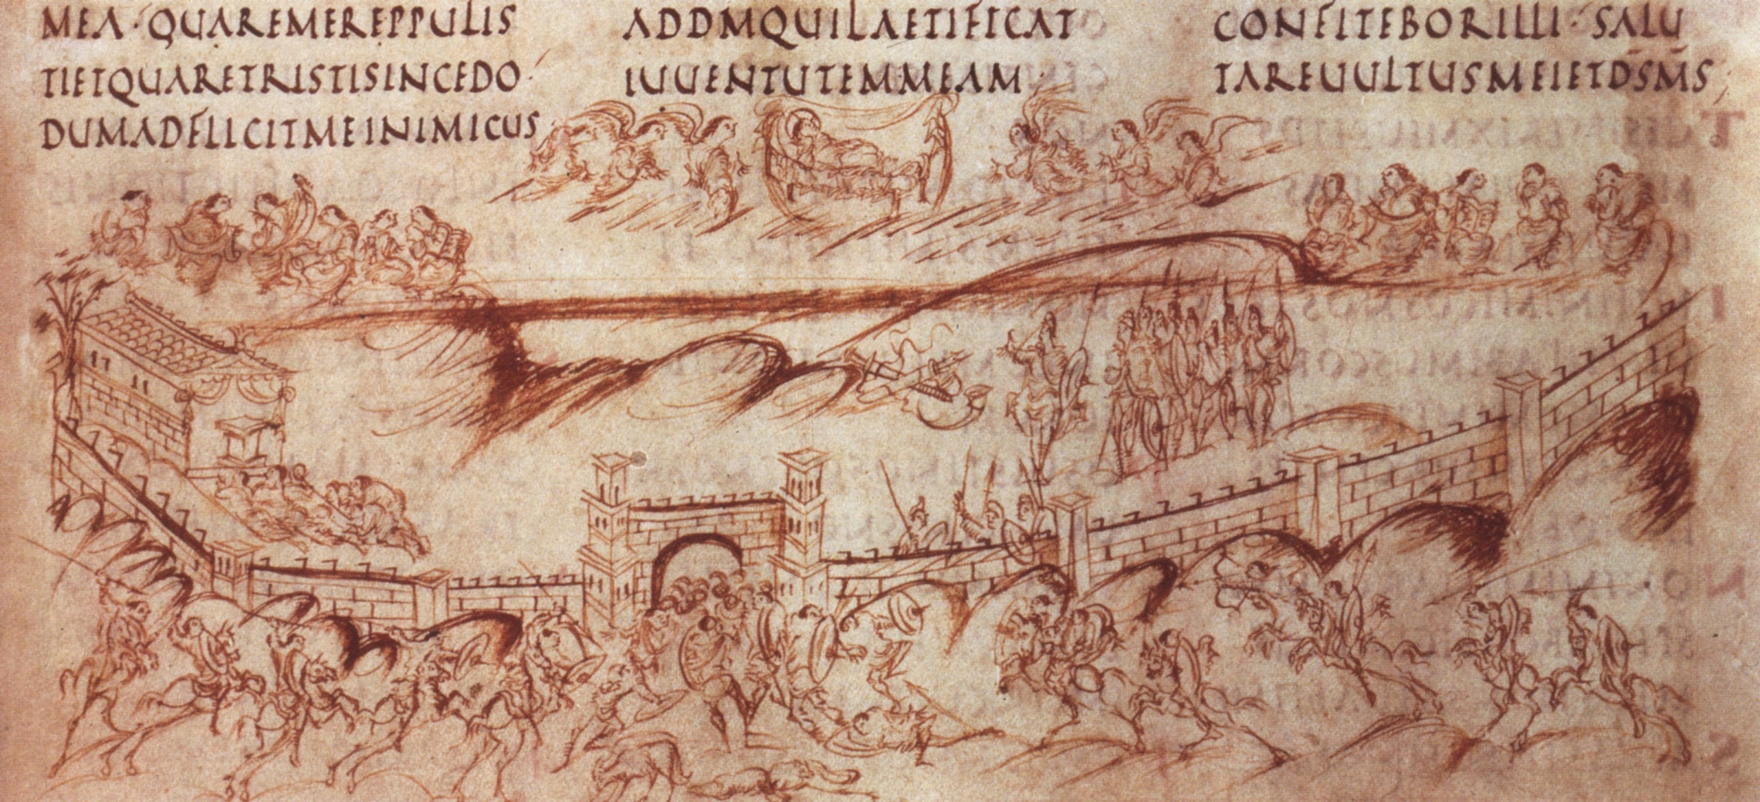 MEA·QUAREMEREPPULIS
TIETQUARETRISTISINCEDO·
DUMADFLICITMEINIMICUS·
ADDMQUILAETIFICAT
IUUENTUTEMMEAM·
CONFITEBORILLI·SALU
TAREUULTUSMEIETDSMS